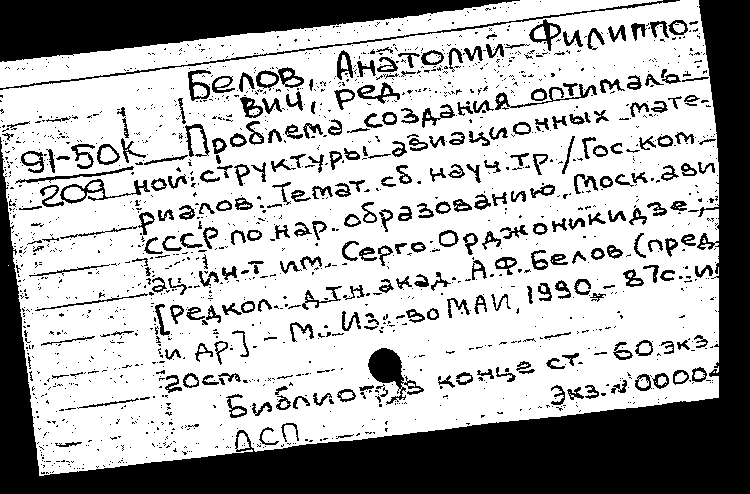 Белов, Анатолий Филиппо-
вич, ред.
91-50К
209
Проблема создания оптималь-
ной структуры авиационных мате-
риалов: Темат. сб. науч. тр. / Гос. ком.
СССР по нар. образованию, Моск. ави
ац. ин-т им. Серго Орджоникидзе;
[Редкол.: д.т.н. акад. А.Ф. Белов (пред
и др.]. - М.: Из-во МАИ, 1990. - 87с.: и
20см.
Библиогр. в конце ст. - 60 экз
Экз. № 00004
ДСП